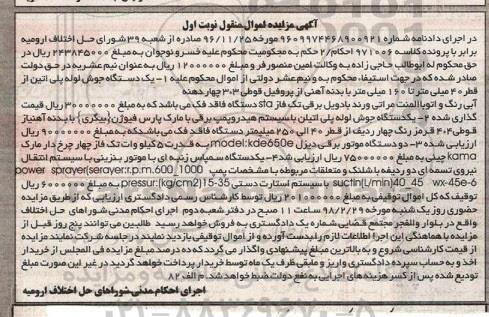 آگهی مزایده اموال منقول نوبت اول
در اجرای دادنامه شماره ۹۶۰۹۹۷۴۴۶۸۹۰۰۹۲۱ مورخه ۹۶/۱۱/۲۵ صادره از شعبه ۳۹ شورای حل اختلاف ارومیه
برابر با پرونده کلاسه ۹۷۱۰۰۶ احکام/۲ حکم به محکومیت محکوم علیه خسرو نوجوان به مبلغ ۲۴۳۸۴۵۰۰۰ ریال در
حق محکوم له ابوطالب حاجی زاده به وکالت امین منصورفر و مبلغ ۱۲۰۰۰۰۰۰ ریال به عنوان نیم عشریه در حق دولت
صادر شده که در جهت استیفاء محکوم به و نیم عشر دولتی از اموال محکوم علیه ۱- یک دستگاه جوش لوله پلی اتین از
قطر ۴۰ میلی متر تا ۱۶۰ میلی متر با بدنه آهنی از پروفیل قوطی ۳*۳ چهار دهنه
آبی رنگ و اتوالمنت مراتی ورنه بادویل برقی تک فاز sta دستگاه فاقد فک می باشد که به مبلغ ۳۰۰۰۰۰۰۰ ریال قیمت
گذاری شده ۲- یکدستگاه جوش لوله پلی اتیلن با سیستم هیدروپمپ برقی با مارک پارس فیوژن (بیگری) با بدنه آهنیاز
قوطی ۴*۴ قرمز رنگ چهار ردیف از قطر ۴۰ الی ۲۵۰ میلیمتر دستگاه فاقد فک می باشدکه به مبلغ ۹۰۰۰۰۰۰۰ ریال
ارزیابی شده ۳- دو دستگاه موتور برقی دیزل model:kde650e به قدرت ۵ کیلو وات تک فاز چهار چرخ دار مارک
kama چینی به مبلغ ۷۵۰۰۰۰۰۰ ریال ارزیابی شد ۴- یکدستگاه سمپاس زنبه ای با موتور بنزینی با سیستم انتقال
نیروی تسمه ای دو ردیفه با شلنگ و متعلقات مربوطه با مشخصات پمپ power sprayer(serayer:r.p.m.600_1000
wx-45e-6 suctin(l/min)40_45 با سیستم استارت دستی pressur:(kg/cm2)15-35 به مبلغ ۶۰۰۰۰۰۰ ریال
توقیف که کل اموال توقیفی به مبلغ ۲۰۱۰۰۰۰۰۰ ریال توسط کارشناس رسمی دادگستری ارزیابی که از طریق مزایده
حضوری روز یک شنبه مورخه ۹۸/۲/۲۹ ساعت ۱۱ صبح در دفتر شعبه دوم اجرای احکام مدنی شوراهای حل اختلاف
واقع در بلوار والفجر مجتمع قضایی شماره یک دادگستری به فروش خواهد رسید طالبین می توانند پنج روز قبل از
مزایده با هماهنگی این اجرا اطلاعات لازم را بدست آورده و از اموال توقیفی بازدید نمایند در جلسه شرکت نمایند مزایده
از قیمت کارشناسی شروع و به بالاترین مبلغ پیشنهادی واگذار می گردد که ده درصد مبلغ مزایده فی المجلس از خریدار
اخذ و به حساب سپرده دادگستری واریز و مابقی ظرف یک ماه توسط خریدار پرداخت خواهد گردید در غیر این صورت مبلغ
تودیع شده پس از کسر هزینه های اجرایی به نفع دولت ضبط خواهد شد. م الف ۸۲
اجرای احکام مدنی شوراهای حل اختلاف ارومیه